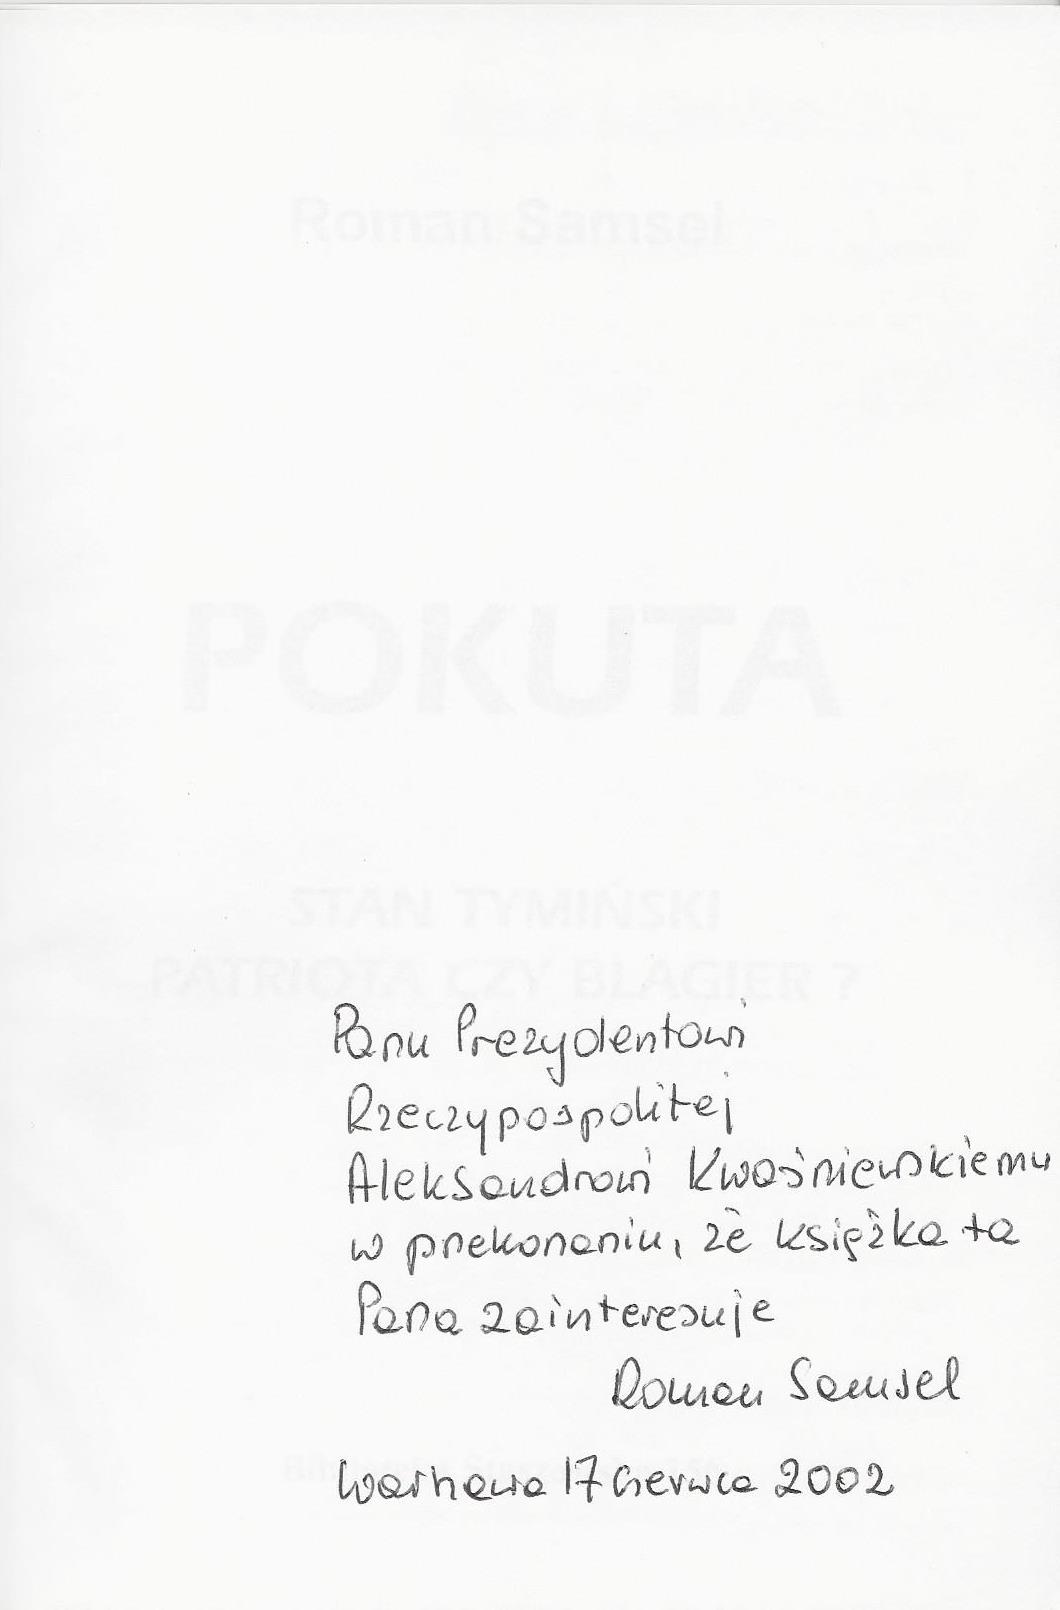 Roman Samsel
POKUTA
STAN TYMIŃSKI
PATRIOTA CZY BLAGIER ?
Panu Prezydentowi
Rzeczypospolitej
Aleksandrowi Kwaśniewskiemu
w przekonaniu, że książka ta
Pana zainteresuje
Roman Samsel
Warszawa 17 czerwca 2002